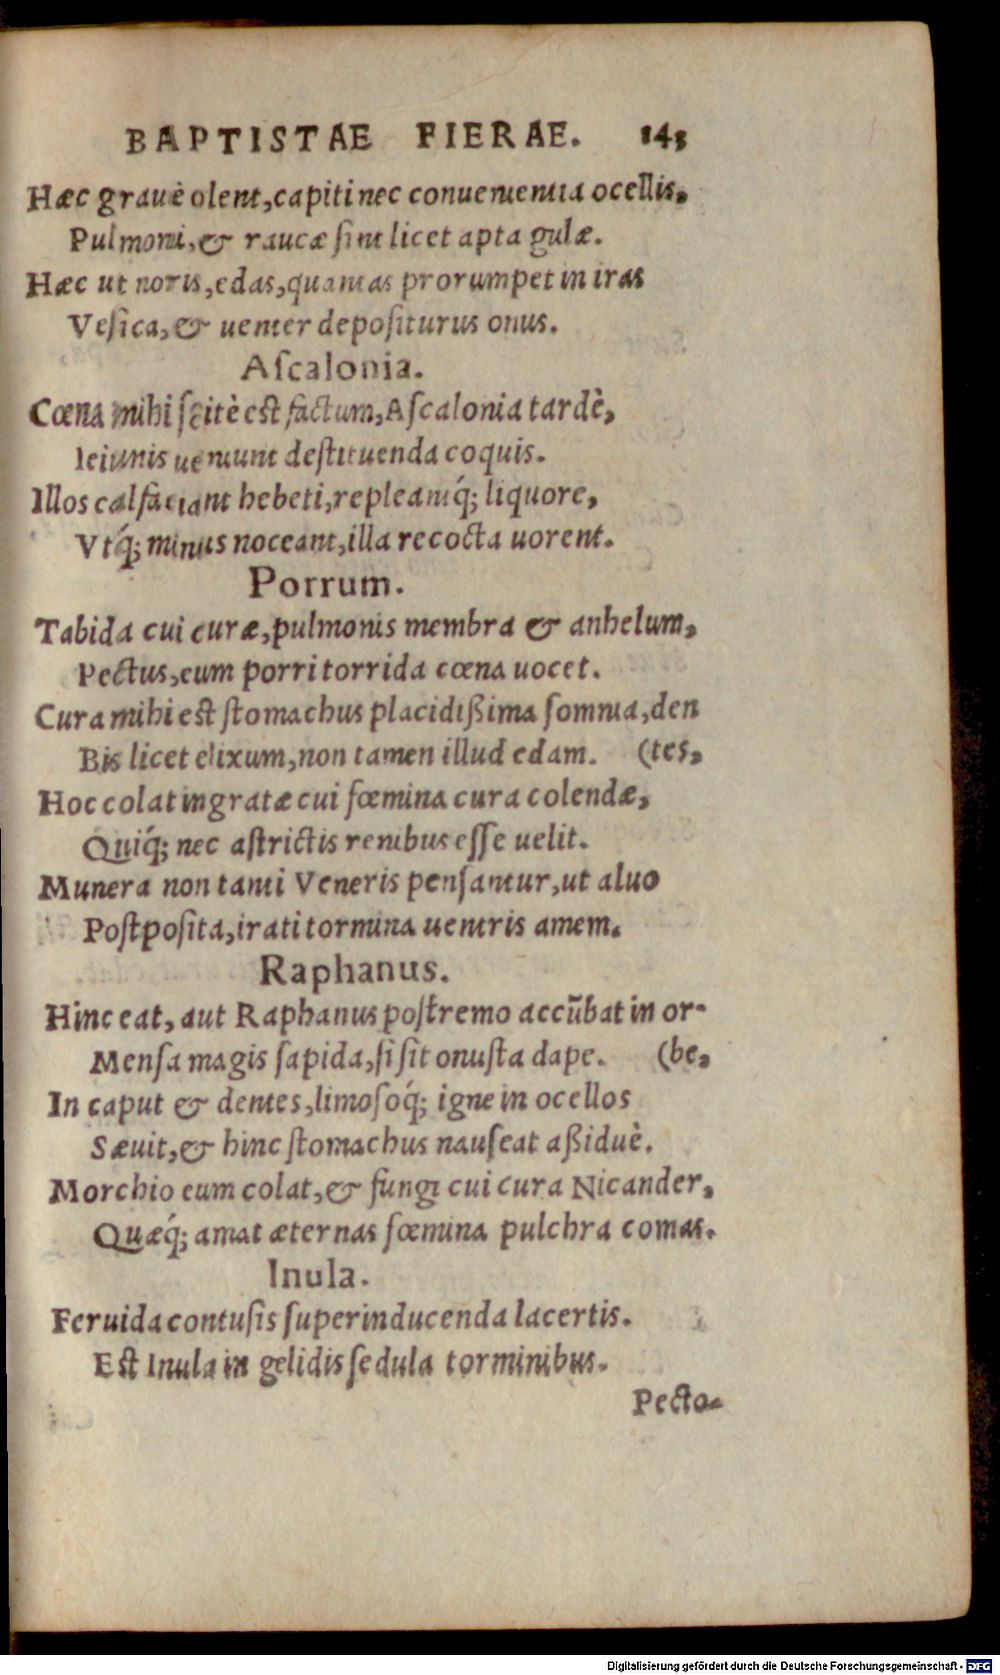 BAPTISTAE FIERAE. 143
Hæc grauè olent, capiti nec conuenientia ocellis,
Pulmoni, & raucæ sint licet apta gulæ.
Hæc ut noris, edas, quantas prorumpet in iras
Vesica, & uenter depositurus onus.
Ascalonia.
Cœna mihi scitè est factum, Ascalonia tardè,
Ieiunis ueniunt destituenda coquis.
Illos calfaciant hebeti, repleantq́; liquore,
Vtq́; minus noceant, illa recocta uorent.
Porrum.
Tabida cui curæ, pulmonis membra & anhelum,
Pectus, eum porri torrida cœna uocet.
Cura mihi est stomachus placidißima somnia, den
Bis licet elixum, non tamen illud edam. (tes,
Hoc colat ingratæ cui fœmina cura colendæ,
Quiq́; nec astrictis renibus esse uelit.
Munera non tanti Veneris pensantur, ut aluo
Postposita, irati tormina uentris amem.
Raphanus.
Hinc eat, aut Raphanus postremo accūbat in or-
Mensa magis sapida, si sit onusta dape. (be,
In caput & dentes, limosoq́; igne in ocellos
Sæuit, & hinc stomachus nauseat aßiduè.
Morchio eum colat, & fungi cui cura Nicander,
Quæq́; amat æternas fœmina pulchra comas.
Inula.
Feruida contusis superinducenda lacertis.
Est Inula in gelidis sedula torminibus.
Pecto-
Digitalisierung gefördert durch die Deutsche Forschungsgemeinschaft - DFG